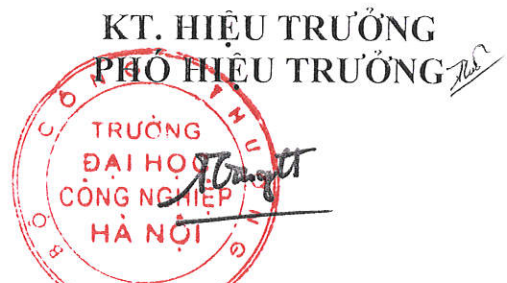 KT. HIỆU TRƯỞNG
PHÓ HIỆU TRƯỞNG
BỘ CÔNG THƯƠNG
TRƯỜNG
ĐẠI HỌC
CÔNG NGHIỆP
HÀ NỘI